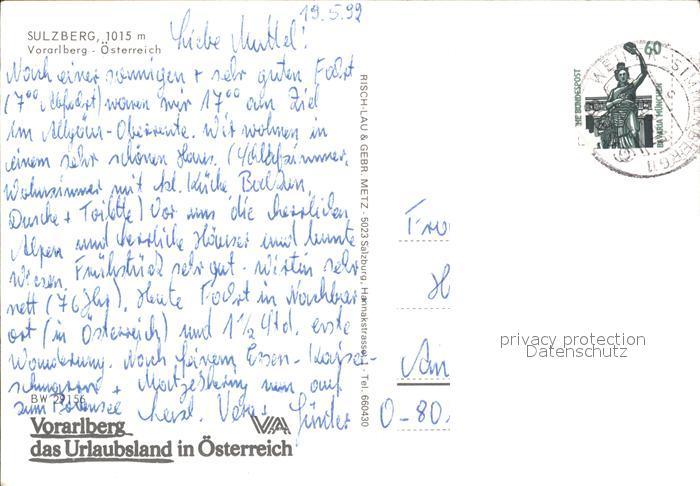 19.5.92
SULZBERG, 1015 m
Vorarlberg - Österreich
Liebe Muttel!
Nach einer sonnigen + sehr guten Fahrt
(7⁰⁰ Abfahrt) waren wir 17⁰⁰ am Ziel
im Allgäu-Oberreute. Wir wohnen in
einem sehr schönen Haus. (Schlafzimmer,
Wohnzimmer mit kl. Küche
Dusche + Toilette) Vor uns die herrlichen
Alpen und herrliche Häuser und bunte
Wiesen. Frühstück sehr gut. Wirtin sehr
nett (76 Jhr). Heute Fahrt in Nachbar
ort (in Österreich) und 1½ Std. erste
Wanderung. Nach feinem Essen - Kaiser
schmarrn + nun auf
zum Bodensee herzl.
Günter
BW 22156
Vorarlberg
das Urlaubsland in Österreich
VA
RISCH-LAU & GEBR. METZ - 5023 Salzburg, Hannakstrasse - Tel. 660430
60
DEUTSCHE BUNDESPOST
BAVARIA MÜNCHEN
Fra
H
Am
O-80
privacy protection
Datenschutz